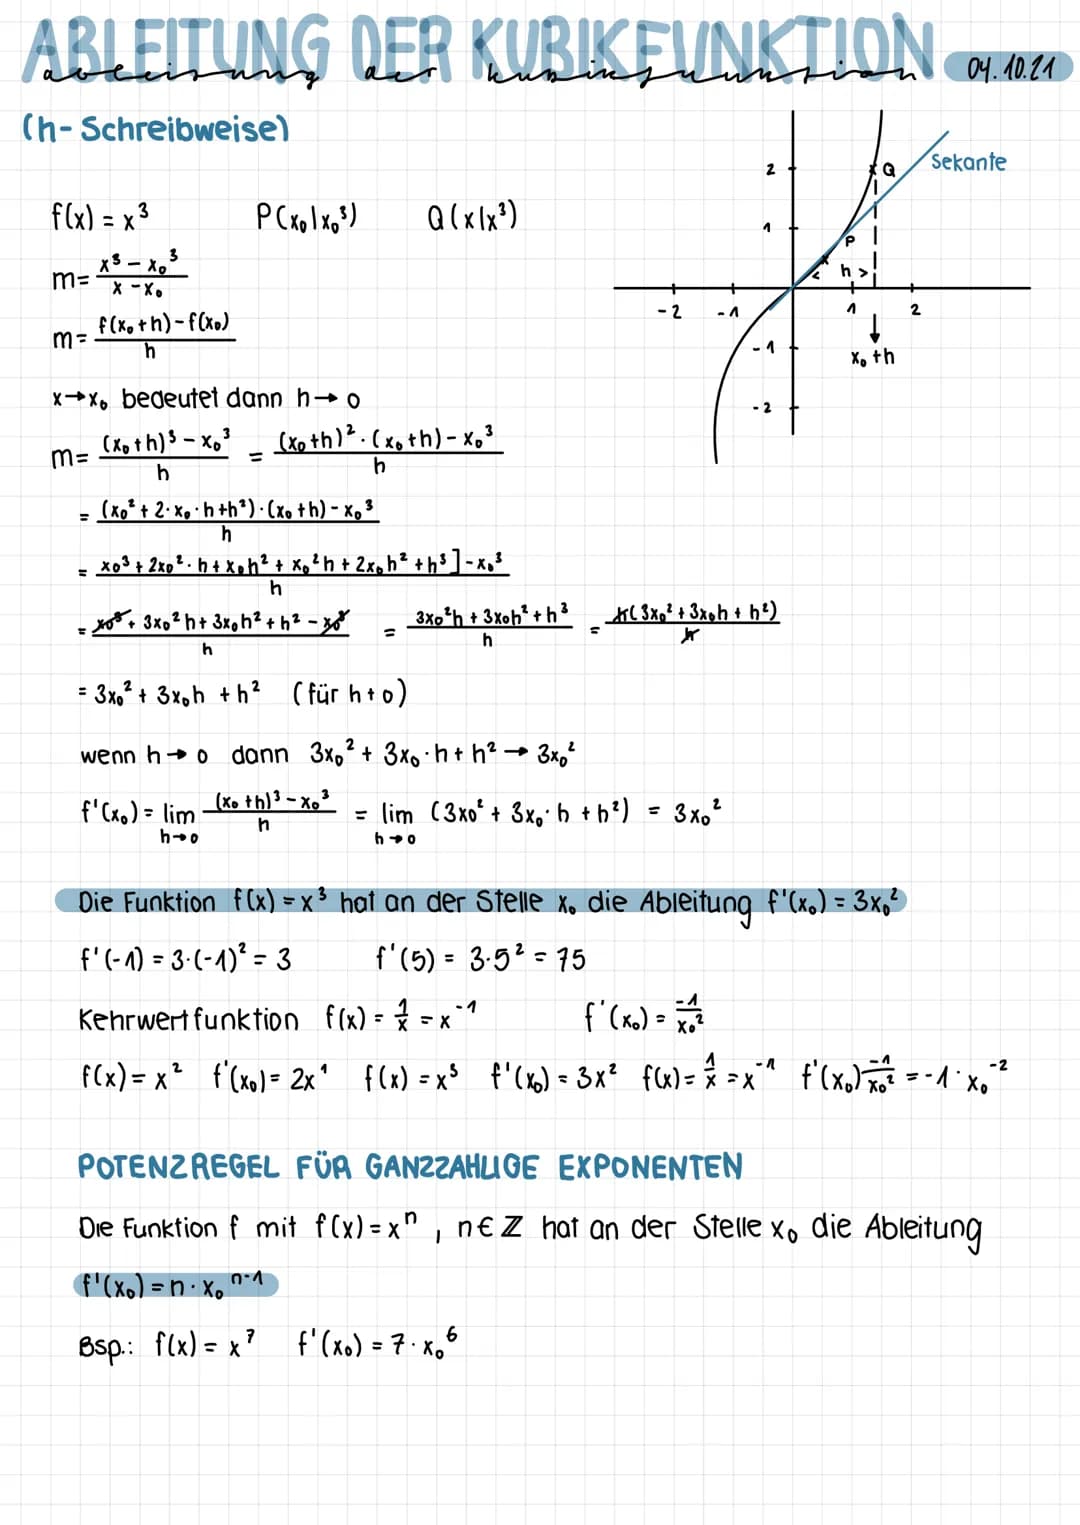 ABLEITUNG DER KUBIKFUNKTION
ableitung der kubikfunktion 04.10.21
(h-Schreibweise)
f(x) = x³ P(x₀|x₀³) Q(x|x³)
m = (x³ - x₀³)/(x - x₀)
m = (f(x₀+h) - f(x₀))/h
x→x₀ bedeutet dann h→0
m = ((x₀+h)³ - x₀³)/h = ((x₀+h)² · (x₀+h) - x₀³)/h
= ((x₀² + 2·x₀·h + h²)·(x₀+h) - x₀³)/h
= (x₀³ + 2x₀²·h + x₀h² + x₀²h + 2x₀h² + h³] - x₀³)/h
= (x₀³ + 3x₀²h + 3x₀h² + h² - x₀³)/h = (3x₀²h + 3x₀h² + h³)/h = h(3x₀² + 3x₀h + h²)/h
= 3x₀² + 3x₀h + h² (für h+0)
wenn h→0 dann 3x₀² + 3x₀·h + h² → 3x₀²
f'(x₀) = lim h→0 ((x₀+h)³ - x₀³)/h = lim h→0 (3x₀² + 3x₀·h + h²) = 3x₀²
Die Funktion f(x) = x³ hat an der Stelle x₀ die Ableitung f'(x₀) = 3x₀²
f'(-1) = 3·(-1)² = 3 f'(5) = 3·5² = 75
Kehrwertfunktion f(x) = 1/x = x⁻¹ f'(x₀) = -1/x₀²
f(x) = x² f'(x₀) = 2x¹ f(x) = x³ f'(x₀) = 3x² f(x) = 1/x = x⁻¹ f'(x₀) -1/x₀² = -1·x₀⁻²
POTENZREGEL FÜR GANZZAHLIGE EXPONENTEN
Die Funktion f mit f(x) = xⁿ, n∈Z hat an der Stelle x₀ die Ableitung
f'(x₀) = n·x₀ⁿ⁻¹
Bsp.: f(x) = x⁷ f'(x₀) = 7·x₀⁶
Sekante
2 Q
1
P
< h >
-2 -1 1 2
-1
x₀+h
-2